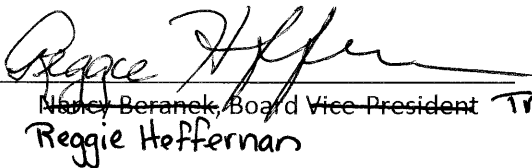 Reggie Heffernan
Nancy Beranek, Board Vice President Tr
Reggie Heffernan